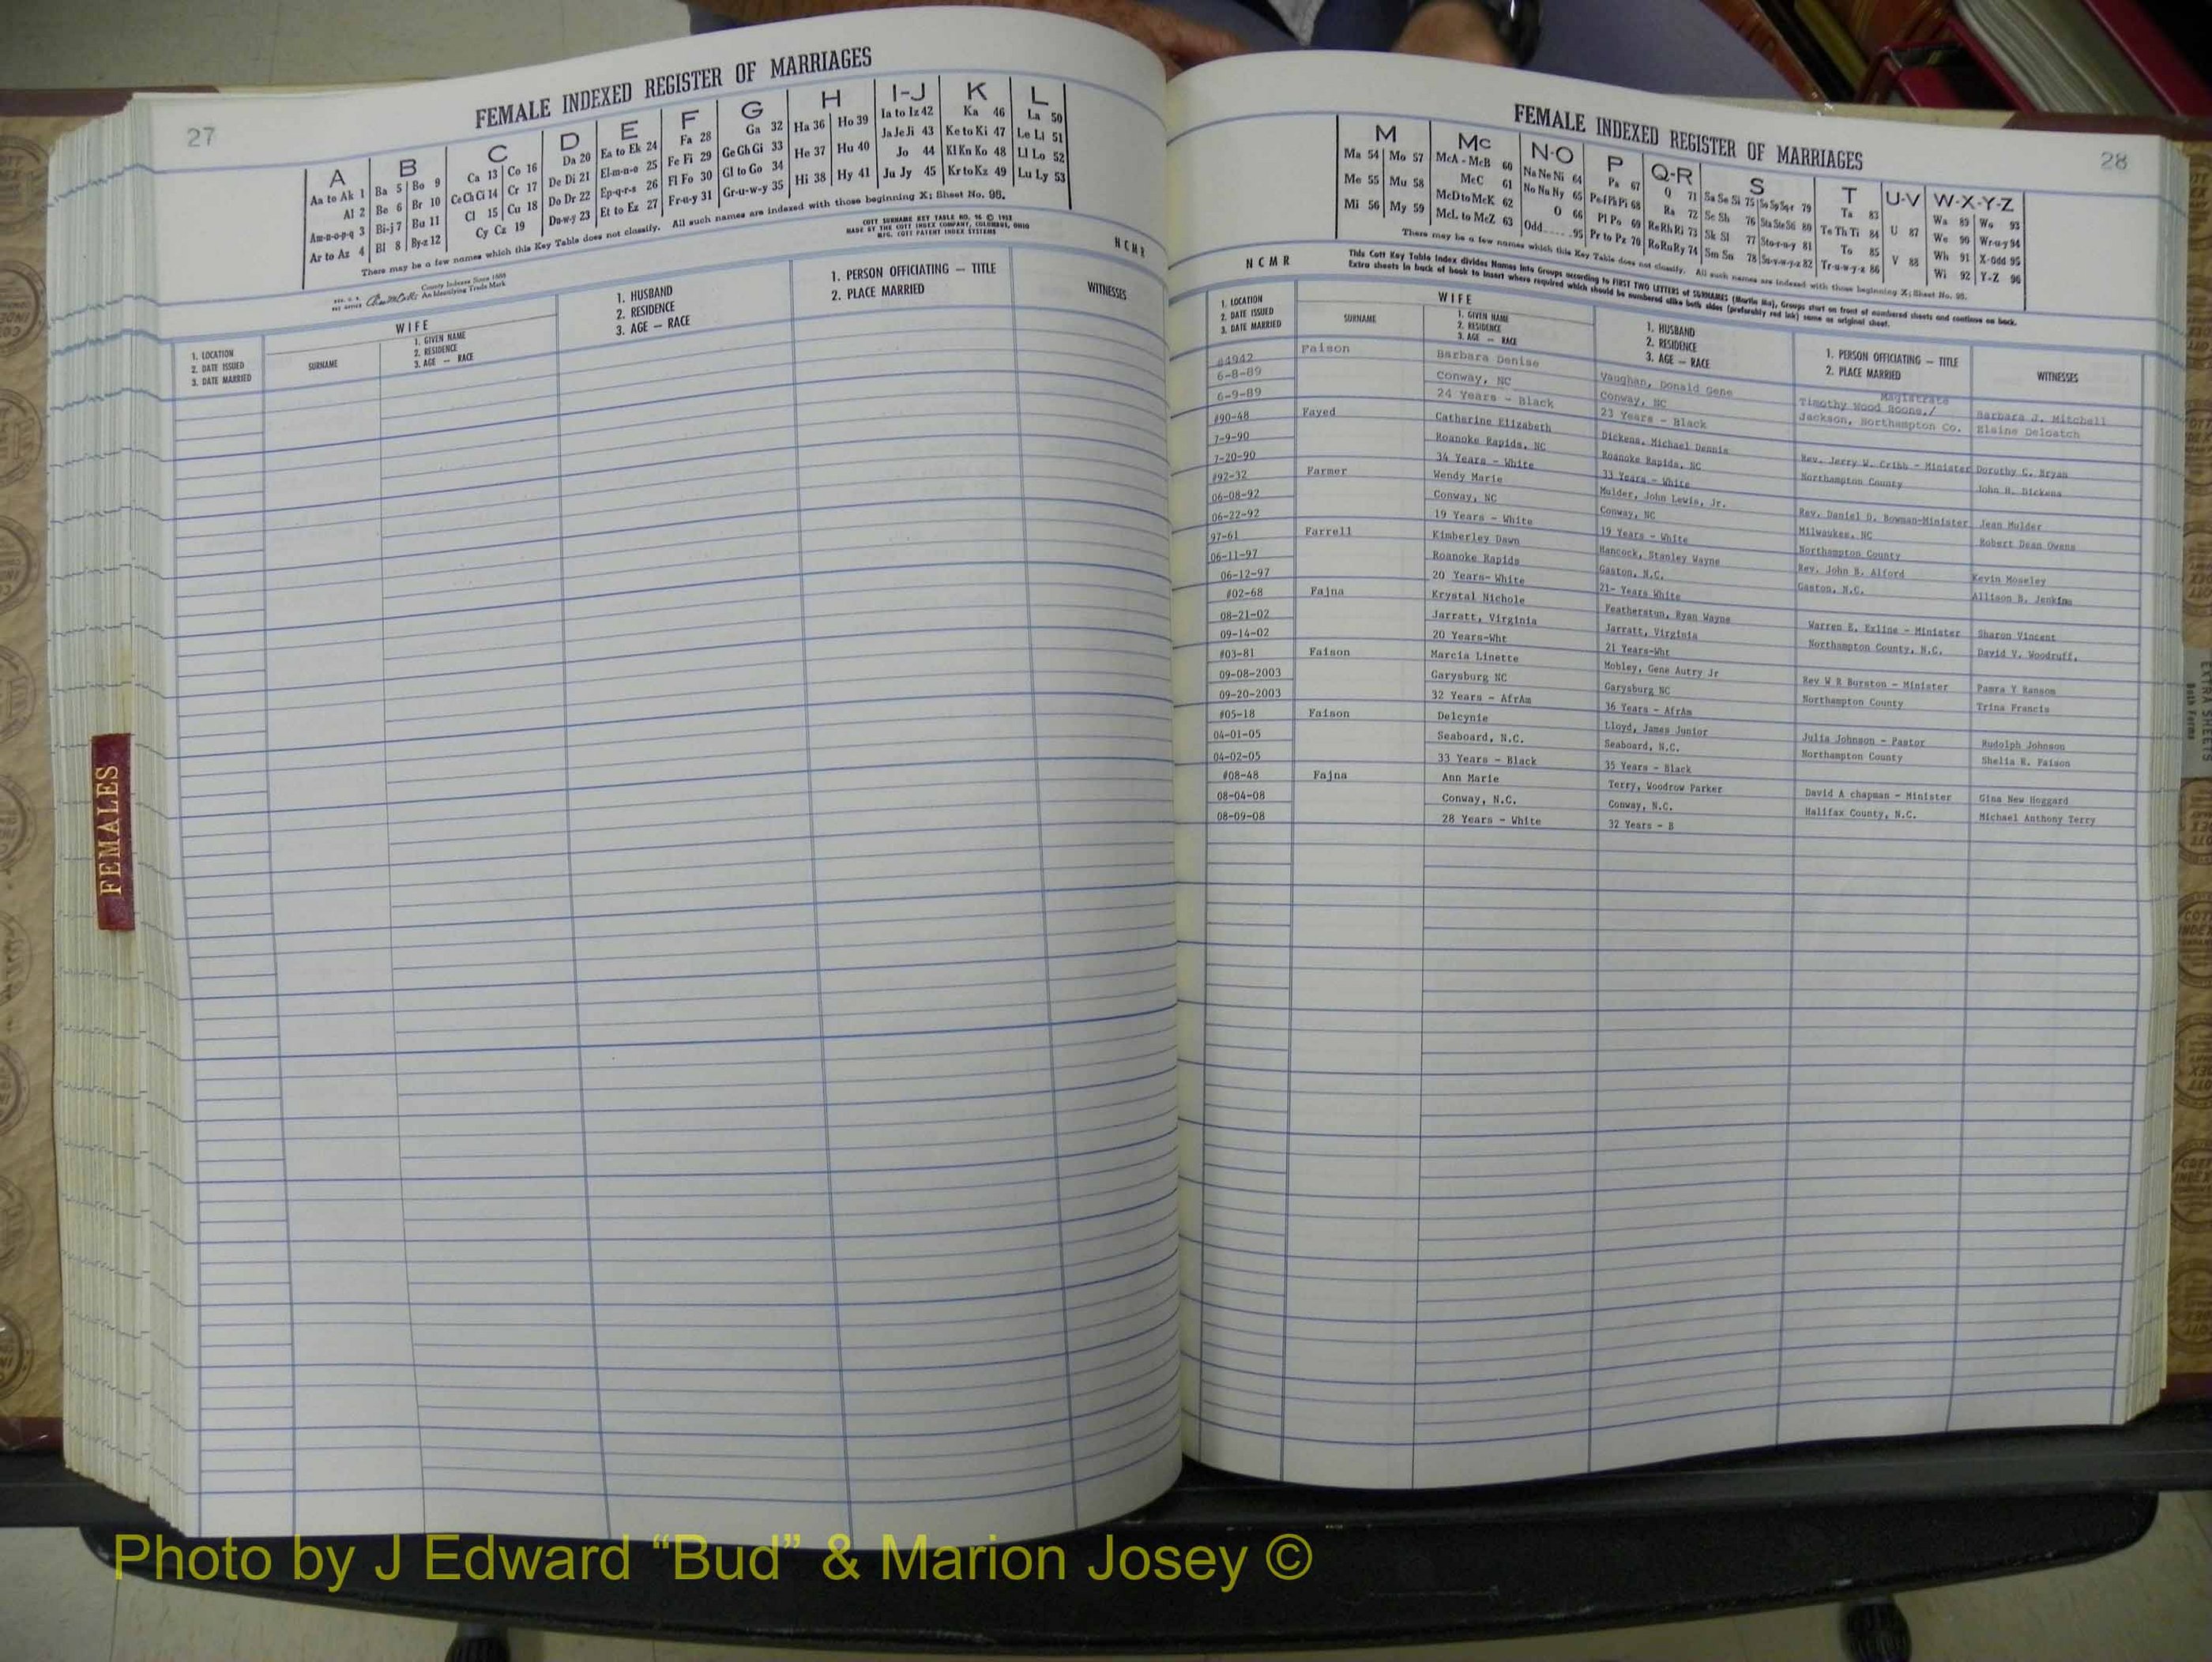 27
FEMALE INDEXED REGISTER OF MARRIAGES
A B C D E F G H I-J K L
Aa to Ak 1 Ba 5 Bo 9 Ca 13 Co 16 Da 20 Ea to Ek 24 Fa 28 Ga 32 Ha 36 Ho 39 Ia to Iz 42 Ka 46 La 50
Al 2 Be 6 Br 10 Ce Ch Ci 14 Cr 17 De Di 21 El-m-n-o 25 Fe Fi 29 Ge Gh Gi 33 He 37 Hu 40 Ja Je Ji 43 Ke to Ki 47 Le Li 51
Am-n-o-p-q 3 Bi-j 7 Bu 11 Cl 15 Cu 18 Do Dr 22 Ep-q-r-s 26 Fl Fo 30 Gl to Go 34 Hi 38 Hy 41 Jo 44 Kl Kn Ko 48 Ll Lo 52
Ar to Az 4 Bl 8 By-z 12 Cy Cz 19 Du-w-y 23 Et to Ez 27 Fr-u-y 31 Gr-u-w-y 35 Ju Jy 45 Kr to Kz 49 Lu Ly 53
There may be a few names which this Key Table does not classify. All such names are indexed with those beginning X; Sheet No. 95.
COTT SURNAME KEY TABLE NO. 96 © 1953
MADE BY THE COTT INDEX COMPANY, COLUMBUS, OHIO
MFG. COTT PATENT INDEX SYSTEMS
County Indexes Since 1888
An Identifying Trade Mark
N C M R
1. LOCATION
2. DATE ISSUED
3. DATE MARRIED
WIFE
SURNAME
1. GIVEN NAME
2. RESIDENCE
3. AGE — RACE
1. HUSBAND
2. RESIDENCE
3. AGE — RACE
1. PERSON OFFICIATING — TITLE
2. PLACE MARRIED
WITNESSES
FEMALES
FEMALE INDEXED REGISTER OF MARRIAGES
28
M Mc N-O P Q-R S T U-V W-X-Y-Z
Ma 54 Mo 57 McA - McB 60 Na Ne Ni 64 Pa 67 Q 71 Sa Se Si 75 So Sp Sq-r 79 Ta 83 U 87 Wa 89 Wo 93
Me 55 Mu 58 McC 61 No Nu Ny 65 Pe Pf Ph Pi 68 Ra 72 Sc Sh 76 Sta Ste Sti 80 Te Th Ti 84 V 88 We 90 Wr-u-y 94
Mi 56 My 59 McD to McK 62 O 66 Pl Po 69 Re Rh Ri 73 Sk Sl 77 Sto-r-u-y 81 To 85 Wh 91 X-Odd 95
McL to McZ 63 Odd 95 Pr to Pz 70 Ro Ru Ry 74 Sm Sn 78 Su-v-w-y-z 82 Tr-u-w-y-z 86 Wi 92 Y-Z 96
There may be a few names which this Key Table does not classify. All such names are indexed with those beginning X; Sheet No. 95.
N C M R
This Cott Key Table Index divides Names into Groups according to FIRST TWO LETTERS of SURNAMES (Martin Ma), Groups start on front of numbered sheets and continue on back.
Extra sheets in back of book to insert where required which should be numbered alike both sides (preferably red ink) same as original sheet.
1. LOCATION
2. DATE ISSUED
3. DATE MARRIED
WIFE
SURNAME
1. GIVEN NAME
2. RESIDENCE
3. AGE — RACE
1. HUSBAND
2. RESIDENCE
3. AGE — RACE
1. PERSON OFFICIATING — TITLE
2. PLACE MARRIED
WITNESSES
#4942 Faison Barbara Denise Vaughan, Donald Gene Magistrate
6-8-89 Conway, NC Conway, NC Timothy Wood Boone,/ Barbara J. Mitchell
6-9-89 24 Years - Black 23 Years - Black Jackson, Northampton Co. Elaine Deloatch
#90-48 Fayed Catharine Elizabeth Dickens, Michael Dennis Rev. Jerry W. Cribb - Minister Dorothy C. Bryan
7-9-90 Roanoke Rapids, NC Roanoke Rapids, NC Northampton County John H. Dickens
7-20-90 34 Years - White 33 Years - White
#92-32 Farmer Wendy Marie Mulder, John Lewis, Jr. Rev. Daniel D. Bowman-Minister Jean Mulder
06-08-92 Conway, NC Conway, NC Milwaukee, NC Robert Dean Owens
06-22-92 19 Years - White 19 Years - White Northampton County
97-61 Farrell Kimberley Dawn Hancock, Stanley Wayne Rev. John B. Alford Kevin Moseley
06-11-97 Roanoke Rapids Gaston, N.C. Gaston, N.C. Allison B. Jenkins
06-12-97 20 Years- White 21- Years White
#02-68 Fajna Krystal Nichole Featherstun, Ryan Wayne Warren E. Exline - Minister Sharon Vincent
08-21-02 Jarratt, Virginia Jarratt, Virginia Northampton County, N.C. David V. Woodruff,
09-14-02 20 Years-Wht 21 Years-Wht
#03-81 Faison Marcia Linette Mobley, Gene Autry Jr Rev W R Burston - Minister Pamra Y Ransom
09-08-2003 Garysburg NC Garysburg NC Northampton County Trina Francis
09-20-2003 32 Years - AfrAm 36 Years - AfrAm
#05-18 Faison Delcynie Lloyd, James Junior Julia Johnson - Pastor Rudolph Johnson
04-01-05 Seaboard, N.C. Seaboard, N.C. Northampton County Shelia R. Faison
04-02-05 33 Years - Black 35 Years - Black
#08-48 Fajna Ann Marie Terry, Woodrow Parker David A chapman - Minister Gina New Hoggard
08-04-08 Conway, N.C. Conway, N.C. Halifax County, N.C. Michael Anthony Terry
08-09-08 28 Years - White 32 Years - B
Photo by J Edward “Bud” & Marion Josey ©